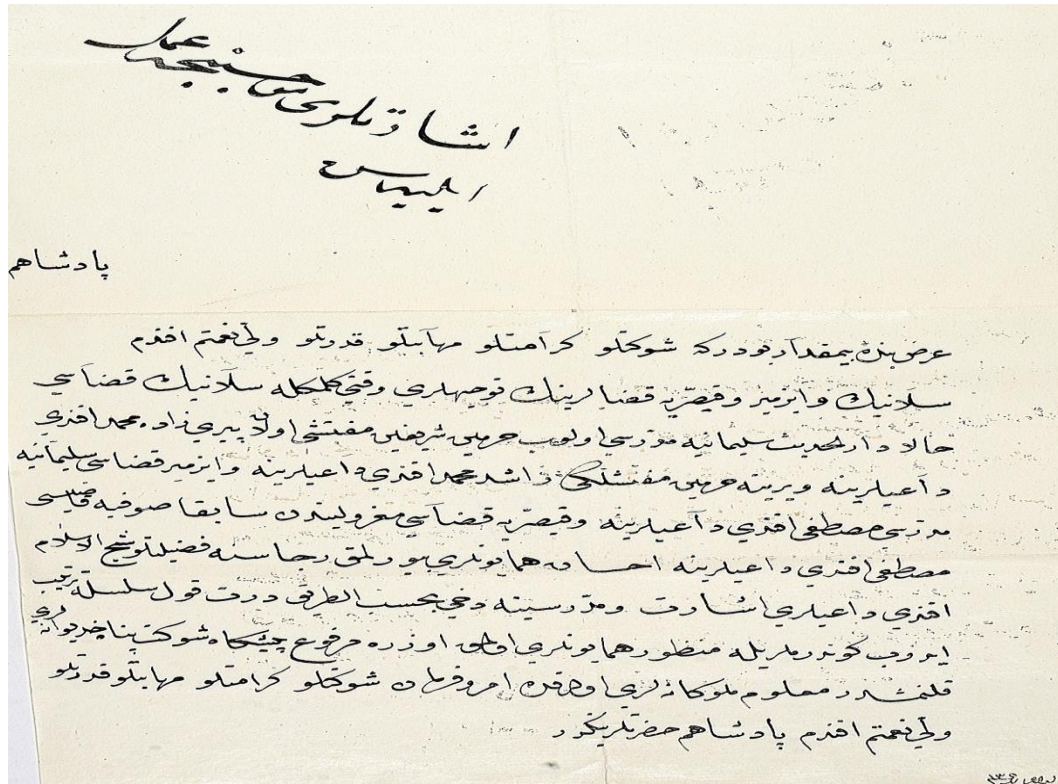 اشارتلری موجبنجه عمل
ایلیەسن
پادشاهم
عرض بندۀ بیمقدار بودركه شوكتلو كرامتلو مهابتلو قدرتلو ولی نعمتم افندم
سلانیك و ازمیر و قیصریه قضالرینك توجیهلری وقتی كلمكله سلانیك قضاسی
حالا دار الحدیث سلیمانیه مدرسی اولوب حرمین شریفین مفتشی اولان پیری زاده محمد افندی
داعیلرینه ویرینه حرمین مفتشلكی راشد محمد افندی داعیلرینه و ازمیر قضاسی سلیمانیه
مدرسی مصطفی افندی داعیلرینه وقیصریه قضاسی معزولیندن سابقا صوفیه قاضیسی
مصطفی افندی داعیلرینه احسان همایونلری بیورلمق رجاسنه فضیلتلو شیخ الاسلام
افندی داعیلری اشارت ومدرسینه دخی بحسب الطریق درت قول سلسله ترتیب
ایدوب كوندرملریله منظور همایونلری اولمق اوزره مرفوع پیشكاه شوكتپناه خدیوانه لری
قلنمشدر معلوم ملوكانه لری اولدقده امر و فرمان شوكتلو كرامتلو مهابتلو قدرتلو
ولی نعمتم افندم پادشاهم حضرتلرینكدر